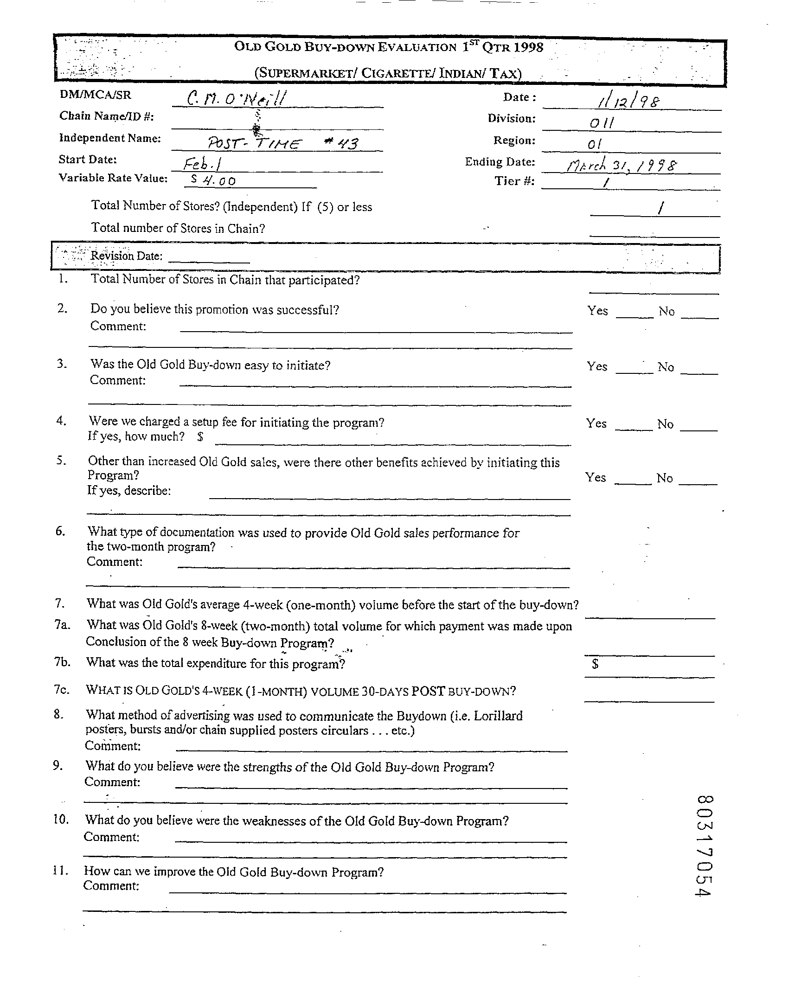 OLD GOLD BUY-DOWN EVALUATION 1ST QTR 1998
(SUPERMARKET/ CIGARETTE/ INDIAN/ TAX)
DM/MCA/SR C. M. O'Neill Date : 1/12/98
Chain Name/ID #: Division: 011
Independent Name: POST-TIME #43 Region: 01
Start Date: Feb. 1 Ending Date: March 31, 1998
Variable Rate Value: $ 4.00 Tier #: 1
Total Number of Stores? (Independent) If (5) or less 1
Total number of Stores in Chain?
Revision Date:
1. Total Number of Stores in Chain that participated?
2. Do you believe this promotion was successful? Yes No
Comment:
3. Was the Old Gold Buy-down easy to initiate? Yes No
Comment:
4. Were we charged a setup fee for initiating the program? Yes No
If yes, how much? $
5. Other than increased Old Gold sales, were there other benefits achieved by initiating this
Program? Yes No
If yes, describe:
6. What type of documentation was used to provide Old Gold sales performance for
the two-month program?
Comment:
7. What was Old Gold's average 4-week (one-month) volume before the start of the buy-down?
7a. What was Old Gold's 8-week (two-month) total volume for which payment was made upon
Conclusion of the 8 week Buy-down Program?
7b. What was the total expenditure for this program? $
7c. WHAT IS OLD GOLD'S 4-WEEK (1-MONTH) VOLUME 30-DAYS POST BUY-DOWN?
8. What method of advertising was used to communicate the Buydown (i.e. Lorillard
posters, bursts and/or chain supplied posters circulars . . . etc.)
Comment:
9. What do you believe were the strengths of the Old Gold Buy-down Program?
Comment:
10. What do you believe were the weaknesses of the Old Gold Buy-down Program?
Comment:
11. How can we improve the Old Gold Buy-down Program?
Comment:
80317054